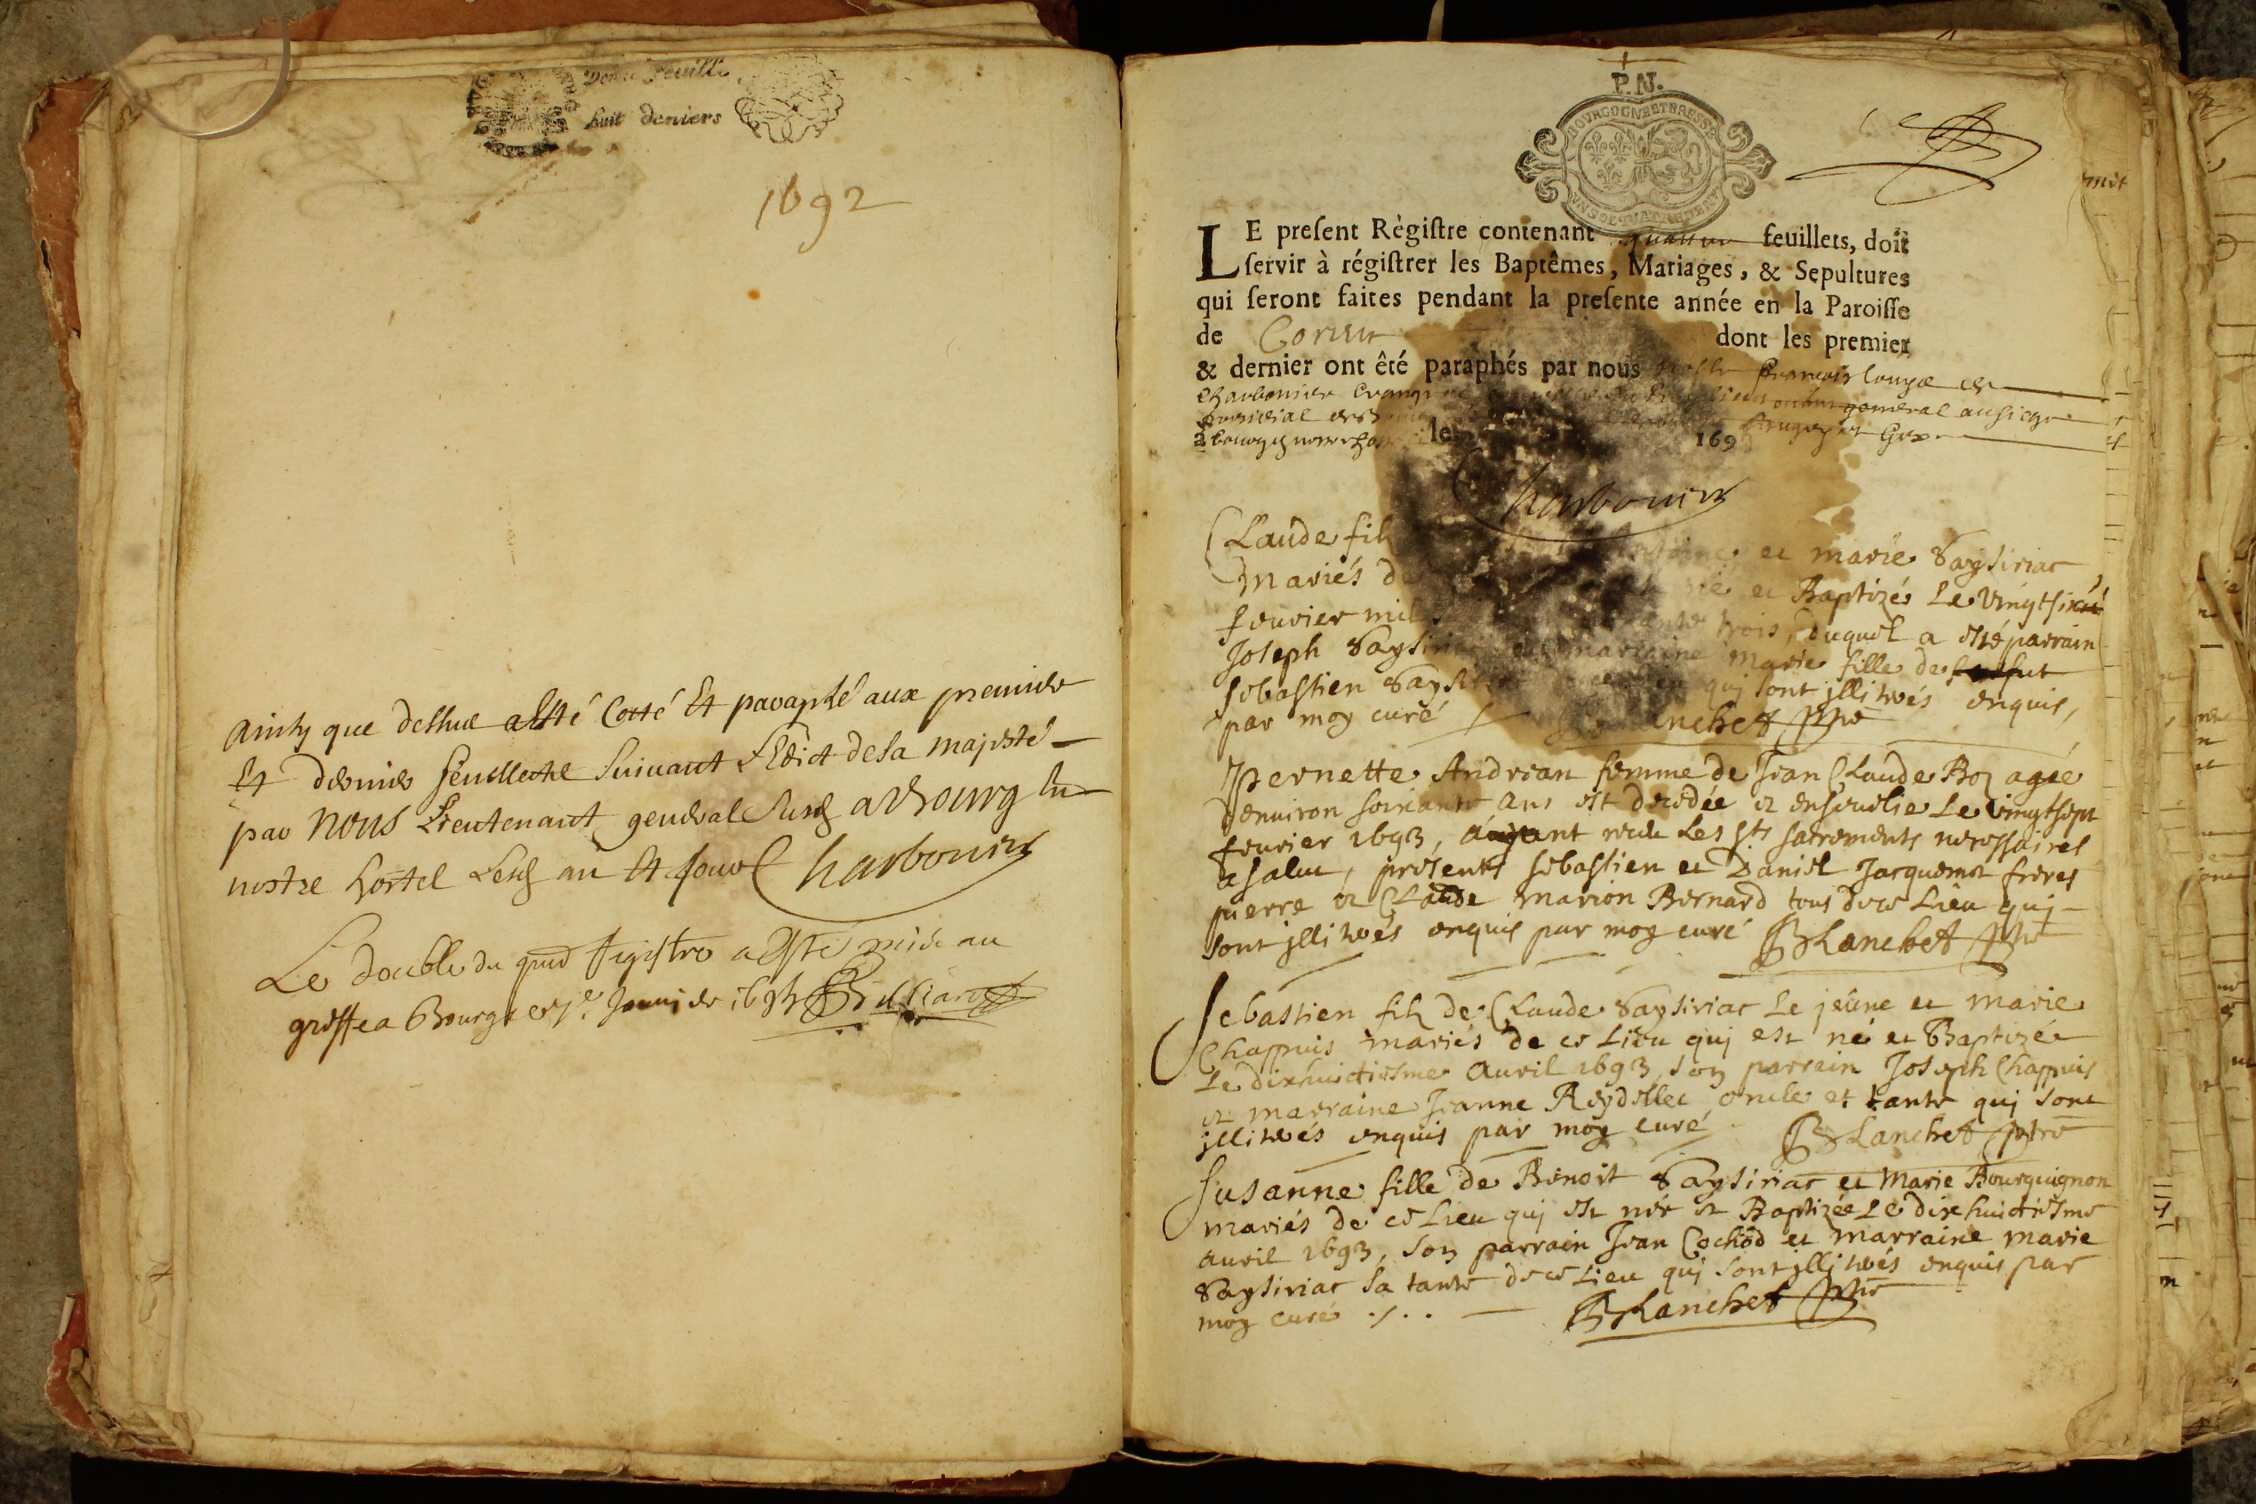 Demie Feuille
huit deniers
1692
Ainsy que dessus a esté Cotté Et paraphé aux premier
Et dernier feuillets Suivant L'Edict de sa majesté
par NOUS Lieutenant general Susd a Bourg En
nostre hostel Lesd an Et jour Charbonier
Le double du pnt Registre a esté mis au
greffe a Bourg ce Janvier
P.N.
BOURGOGNE ET BRESSE
LE present Règistre contenant quatre feuillets, doit
servir à régistrer les Baptêmes, Mariages, & Sepultures
qui seront faites pendant la presente année en la Paroisse
de dont les premier
& dernier ont êté paraphés par nous François
Charbonier general au siege
presidial Bugey et Gex
a bourg le 169
Charbonier
Claude fils et marie Saysiriac
Mariés né et Baptizé Le vingtsix
feuvier mil trois, duquel a esté parrain
Joseph Saysiriac marraine Marie fille de
sebastien qui sont illitrés enquis,
par moy curé Blanchet ptre
Pernette Andrean femme de Jean Claude Boz agée
denviron soixante ans est decedée et ensevelie Le vingtsept
feuvier 1693, ayant receu Les sts sacrements necessaires
a salut, presents sebastien et Daniel Jacquemot freres
pierre et Claude marion Bernard tous de ce Lieu qui
sont illitrés enquis par moy curé Blanchet ptre
Sebastien fils de Claude Saysiriac Le jeûne et Marie
Chappuis mariés de ce Lieu qui est né et Baptizé
Le dixhuictiesme Avril 1693, son parrain Joseph Chappuis
et marraine Jeanne Reydellet, oncle et tante qui sont
illitrés enquis par moy curé Blanchet ptre
Susanne fille de Benoit Saysiriac et Marie Bourguignon
mariés de ce Lieu qui est née et Baptizée Le dixhuictiesme
avril 1693, son parrain Jean Cochod et marraine marie
Saysiriac sa tante de ce Lieu qui sont illitrés enquis par
moy curé ./. . Blanchet ptre